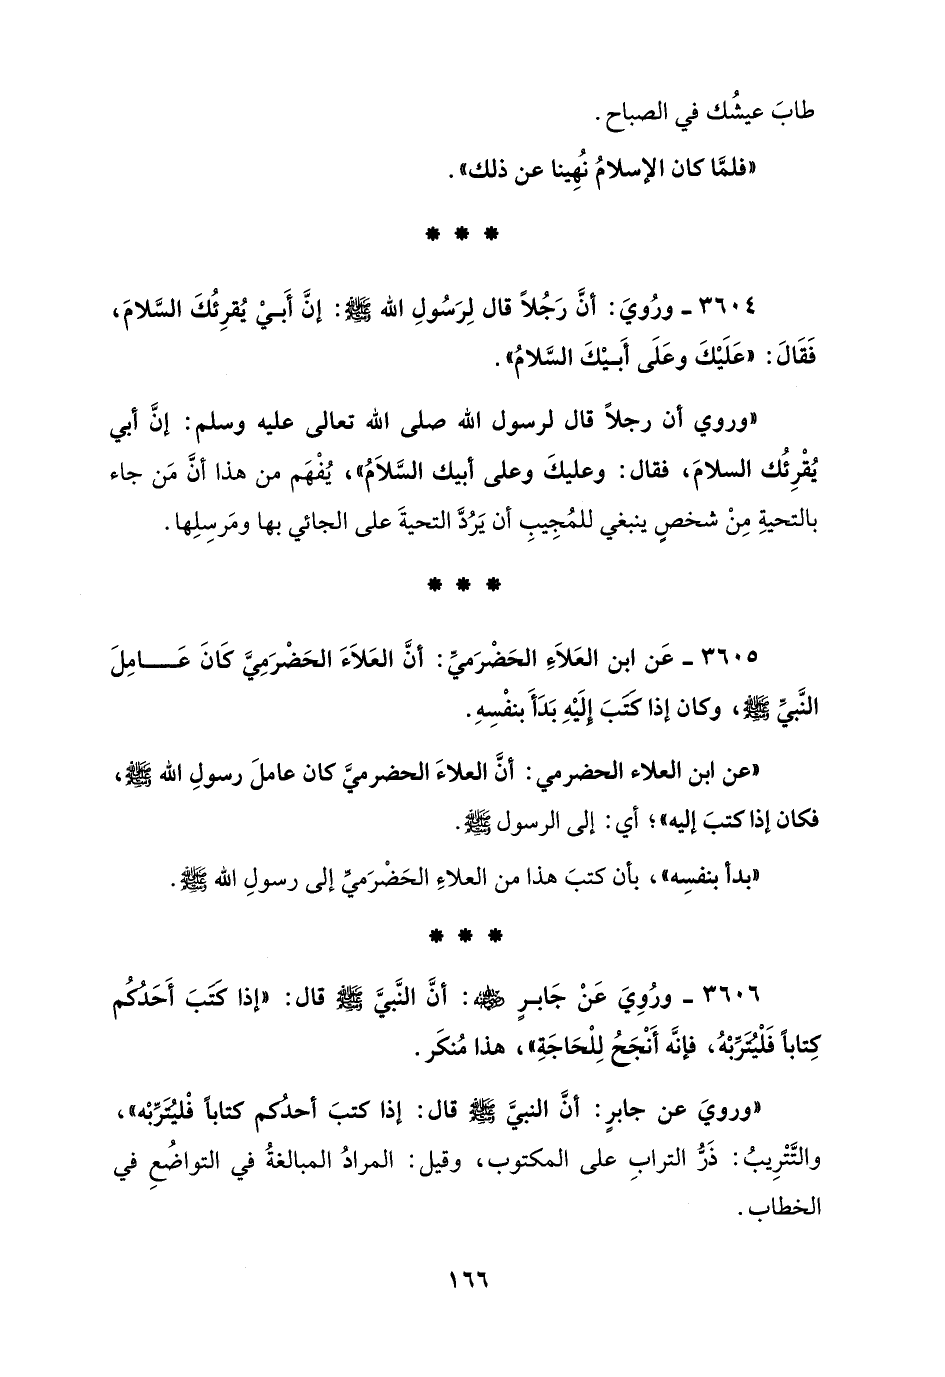 طابَ عيشُك في الصباح.
«فلمَّا كان الإسلامُ نُهِينا عن ذلك».
* * *
٣٦٠٤ ـ ورُويَ: أنَّ رَجُلاً قال لِرَسُولِ الله ﷺ: إنَّ أَبيْ يُقرِئُكَ السَّلامَ،
فَقَالَ: «عَلَيْكَ وعَلَى أَبيْكَ السَّلامُ».
«وروي أن رجلاً قال لرسول الله صلى الله تعالى عليه وسلم: إنَّ أبي
يُقْرِئُك السلامَ، فقال: وعليكَ وعلى أبيك السَّلاَمُ»، يُفْهَم من هذا أنَّ مَن جاء
بالتحيةِ مِنْ شخصٍ ينبغي للمُجِيبِ أن يَرُدَّ التحيةَ على الجائي بها ومَرسِلِها.
* * *
٣٦٠٥ ـ عَن ابن العَلاَءِ الحَضْرَميِّ: أنَّ العَلاَءَ الحَضْرَمِيَّ كَانَ عَـــامِلَ
النَّبيِّ ﷺ، وكان إذا كَتَبَ إلَيْهِ بَدَأَ بنفْسِهِ.
«عن ابن العلاء الحضرمي: أنَّ العلاءَ الحضرميَّ كان عاملَ رسولِ الله ﷺ،
فكان إذا كتبَ إليه»؛ أي: إلى الرسول ﷺ.
«بدأ بنفسِه»، بأن كتبَ هذا من العلاءِ الحَضْرَميِّ إلى رسولِ الله ﷺ.
* * *
٣٦٠٦ ـ ورُوِيَ عَنْ جَابرٍ ﵁: أنَّ النَّبيَّ ﷺ قال: «إذا كَتَبَ أَحَدُكُم
كِتاباً فَلْيُتَرِّبْهُ، فإنَّه أَنْجَحُ لِلْحَاجَةِ»، هذا مُنكَر.
«ورويَ عن جابرٍ: أنَّ النبيَّ ﷺ قال: إذا كتبَ أحدُكم كتاباً فْليُتَرِّبْه»،
والتَّتْرِيبُ: ذَرُّ الترابِ على المكتوب، وقيل: المرادُ المبالغةُ في التواضُعِ في
الخطاب.
١٦٦